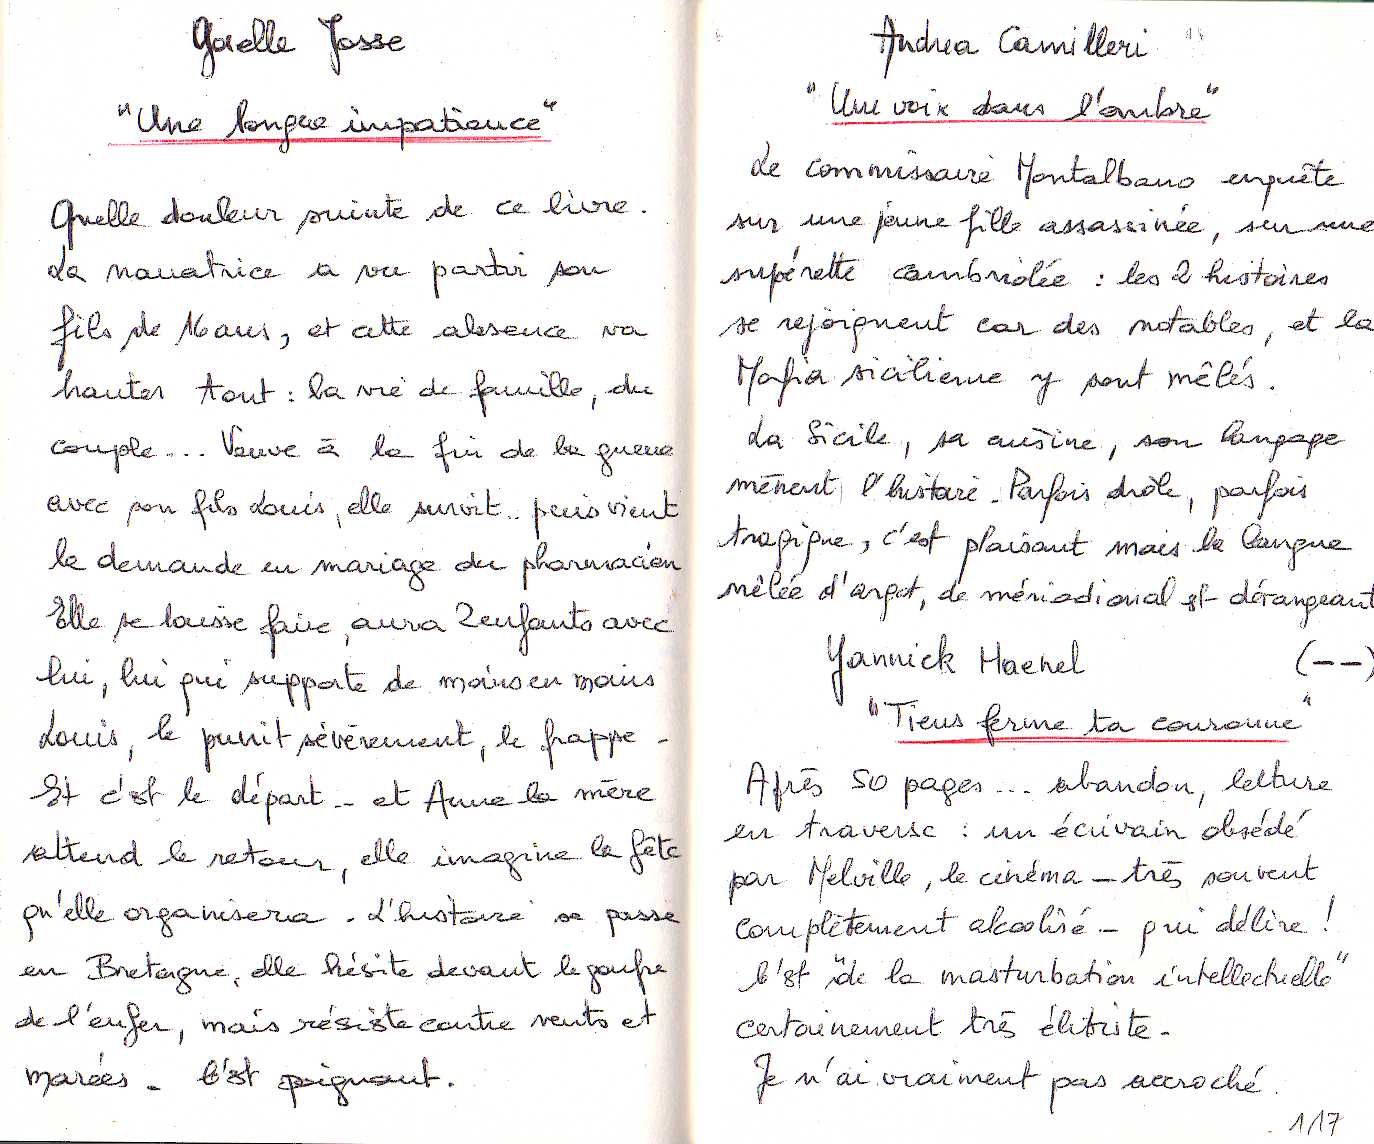 Gaelle Josse
"Une longue impatience"
Quelle douleur suinte de ce livre.
La narratrice a vu partir son
fils de 16 ans, et cette absence va
hanter tout : la vie de famille, du
couple... Veuve à la fin de la guerre
avec son fils Louis, elle survit.. puis vient
la demande en mariage du pharmacien
Elle se laisse faire, aura 2 enfants avec
lui, lui qui supporte de moins en moins
Louis, le punit sévèrement, le frappe -
Et c'est le départ - et Anne la mère
attend le retour, elle imagine la fête
qu'elle organisera - L'histoire se passe
en Bretagne, elle hésite devant le gouffre
de l'enfer, mais résiste contre vents et
marées - C'est poignant.
Andrea Camilleri
"Une voix dans l'ombre"
Le commissaire Montalbano enquête
sur une jeune fille assassinée, sur une
supérette cambriolée : les 2 histoires
se rejoignent car des notables, et la
Mafia sicilienne y sont mêlés.
La Sicile, sa cuisine, son langage
mènent l'histoire - Parfois drôle, parfois
tragique, c'est plaisant mais la langue
mêlée d'argot, de méridional est dérangeant
Yannick Haenel (--)
"Tiens ferme ta couronne"
Après 50 pages... abandon, lecture
en traverse : un écrivain obsédé
par Melville, le cinéma - très souvent
complètement alcoolisé - qui délire !
C'est "de la masturbation intellectuelle"
certainement très élitiste -
Je n'ai vraiment pas accroché.
117